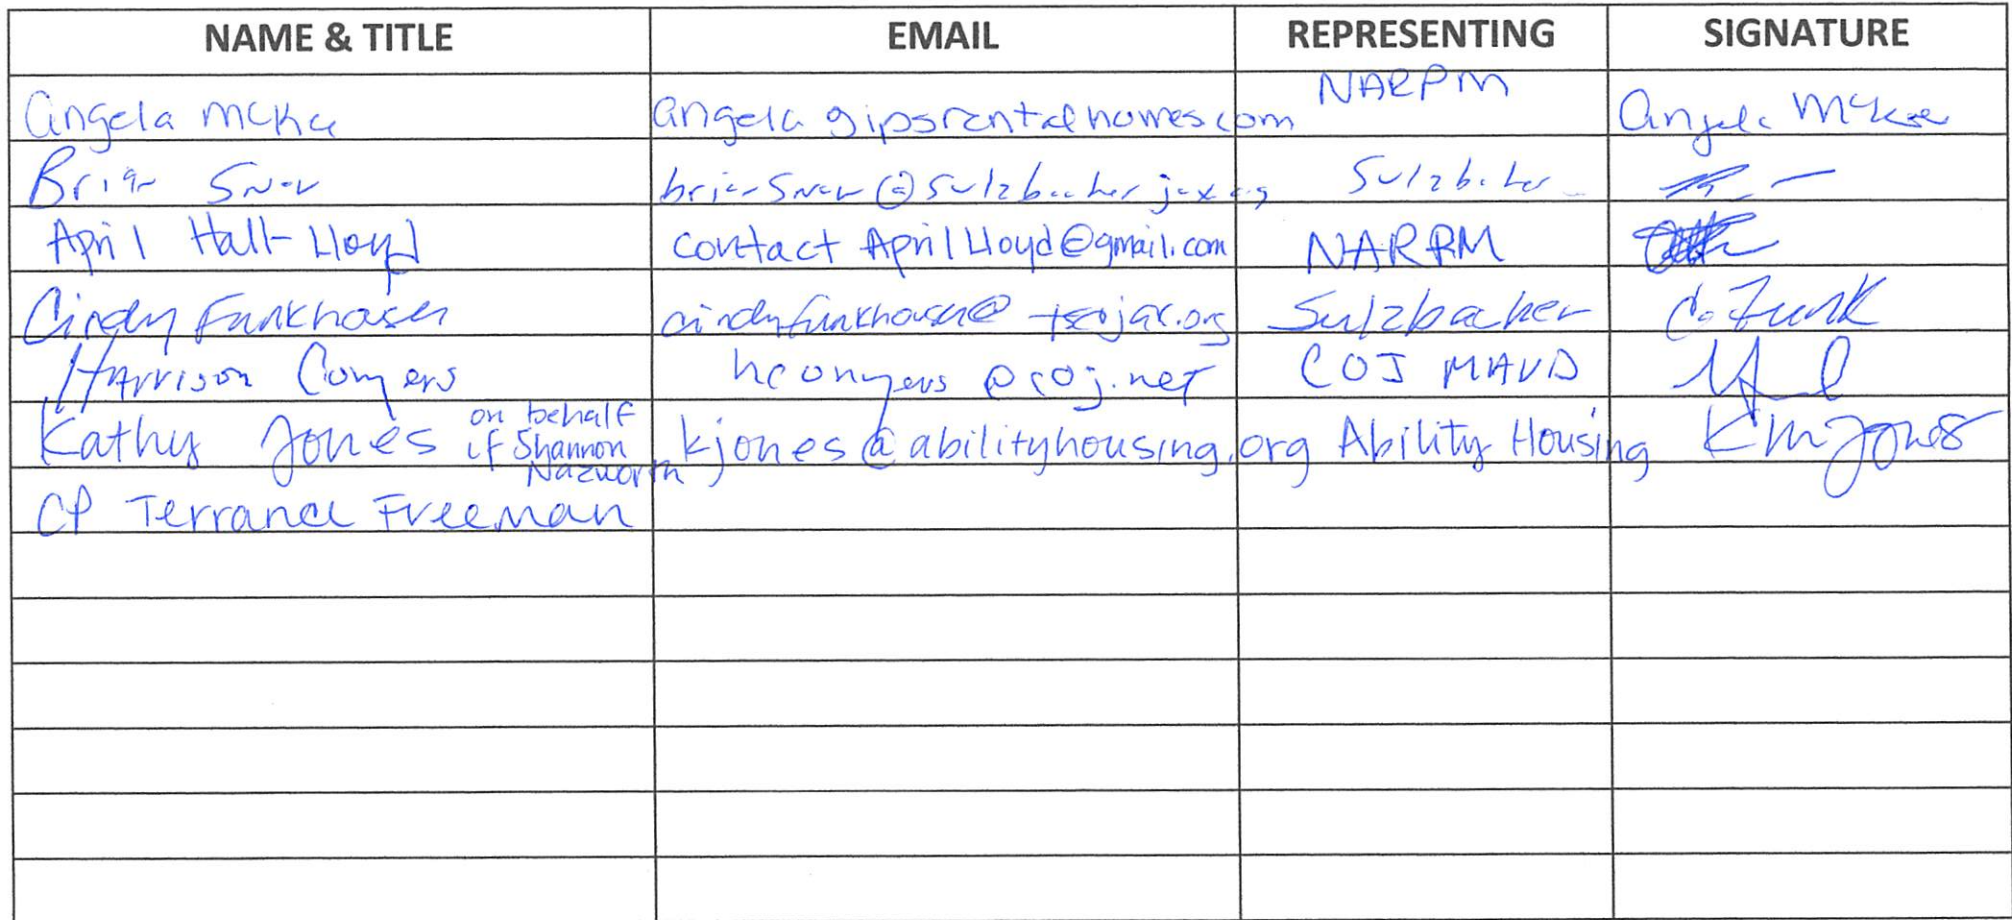 NAME & TITLE EMAIL REPRESENTING SIGNATURE
NARPM
Angela McKee angela gipsrentalhomes com Angela McKee
Brian Snow briansnow@sulzbacherjax.org Sulzbacher
April Hall-Lloyd contact AprilLloyd@gmail.com NARPM
Cindy Funkhouser cindyfunkhouser@ jax.org Sulzbacher C. Funk
Harrison Conyers hconyers@coj.net COJ MAVD
on behalf
Kathy Jones if Shannon kjones@abilityhousing.org Ability Housing KM Jones
Nazworth
CP Terrance Freeman